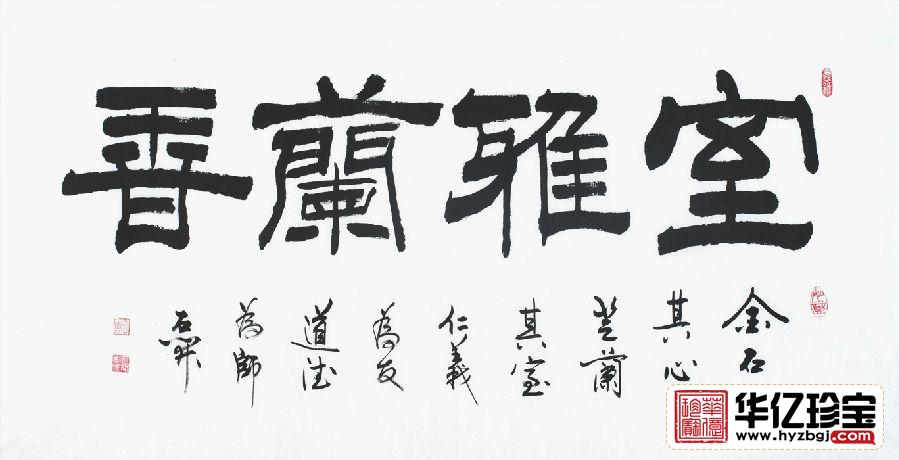 室雅蘭香
金石
其心
芝蘭
其室
仁義
為友
道德
為師
华亿珍宝
www.hyzbgj.com